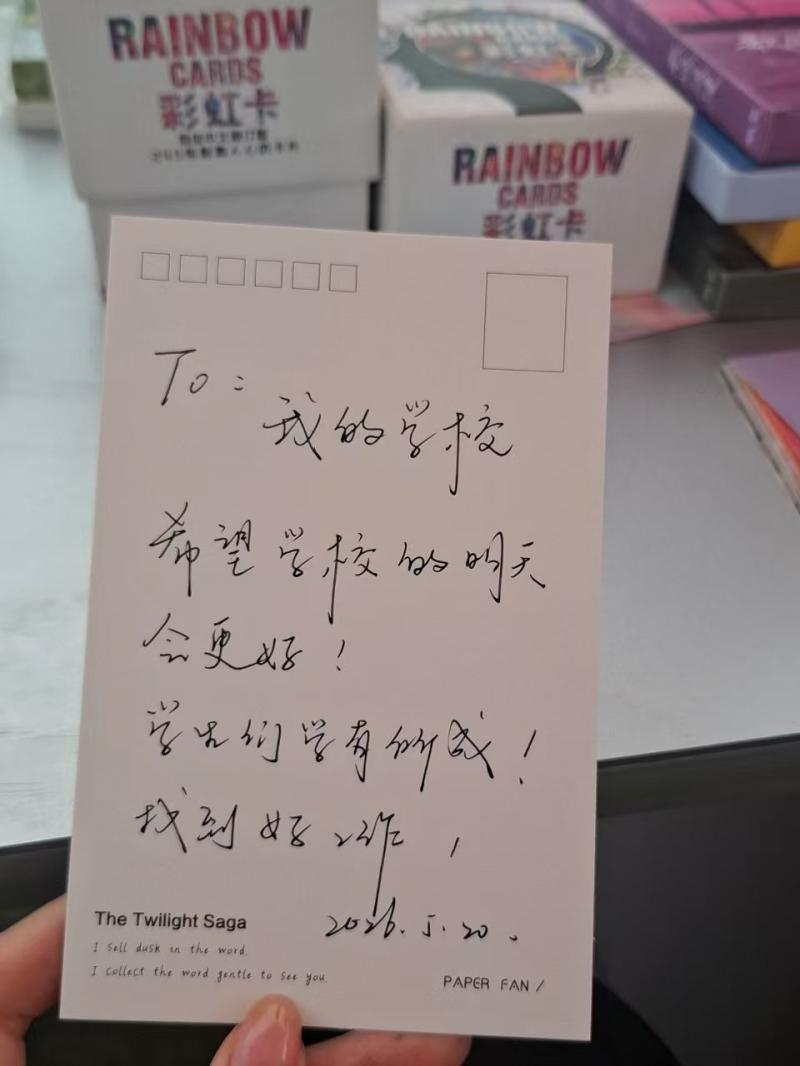 RAINBOW
CARDS
彩虹卡
RAINBOW
CARDS
彩虹卡
To:
我的学校
希望学校的明天
会更好!
学生们学有所成!
找到好工作,
2026.5.20.
The Twilight Saga
I sell dusk in the word.
I collect the word gentle to see you.
PAPER FAN /